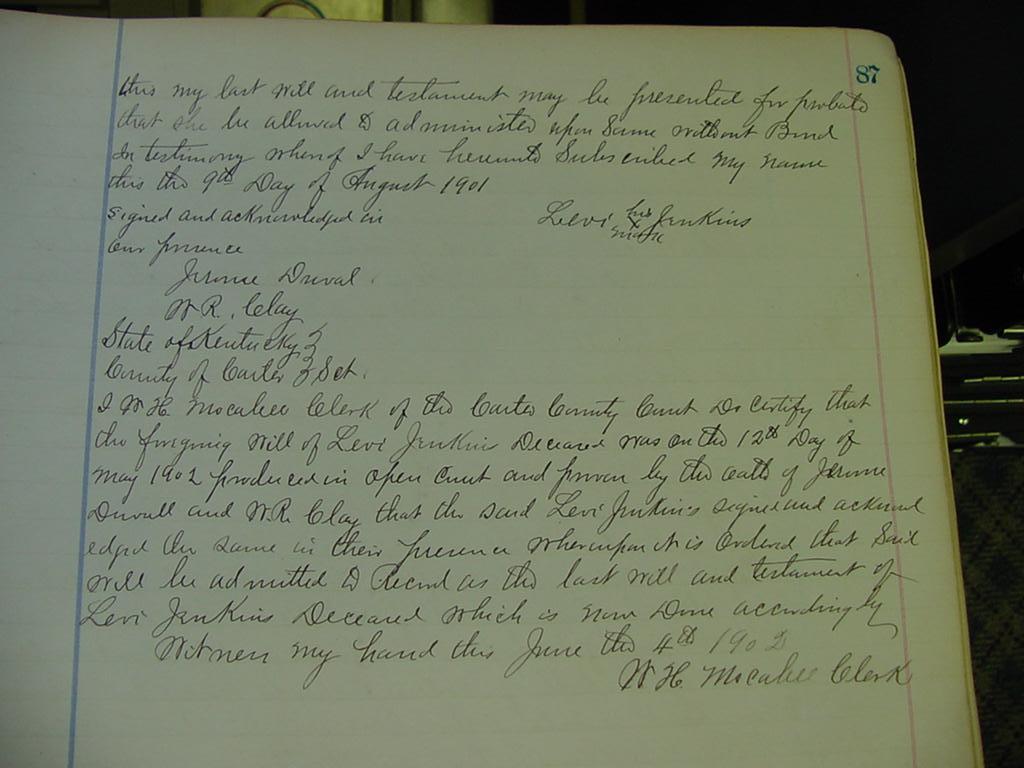 87
this my last will and testament may be presented for probate
that she be allowed to administer upon Same without Bond
In testimony wherof I have hereunto Subscribed my name
this the 9th Day of August 1901
signed and acknowledged in Levi his Jenkins
x
mark
our presence
Jerome Duval.
W R. Clay
State of Kentucky }
County of Carter } Sct.
I W. H. Mocabee Clerk of the Carter County Court Do certify that
the foregoing Will of Levi Jenkins Deceased was on the 12th Day of
May 1902 produced in open Court and proven by the oath of Jerome
Duvall and W.R. Clay that the said Levi Jenkins signed and acknowl
edged the same in their presence whereupon it is Ordered that Said
will be admitted to Record as the last will and testament of
Levi Jenkins Deceased which is now Done accordingly
Witness my hand this June the 4th 1902
W H. Mocabee Clerk